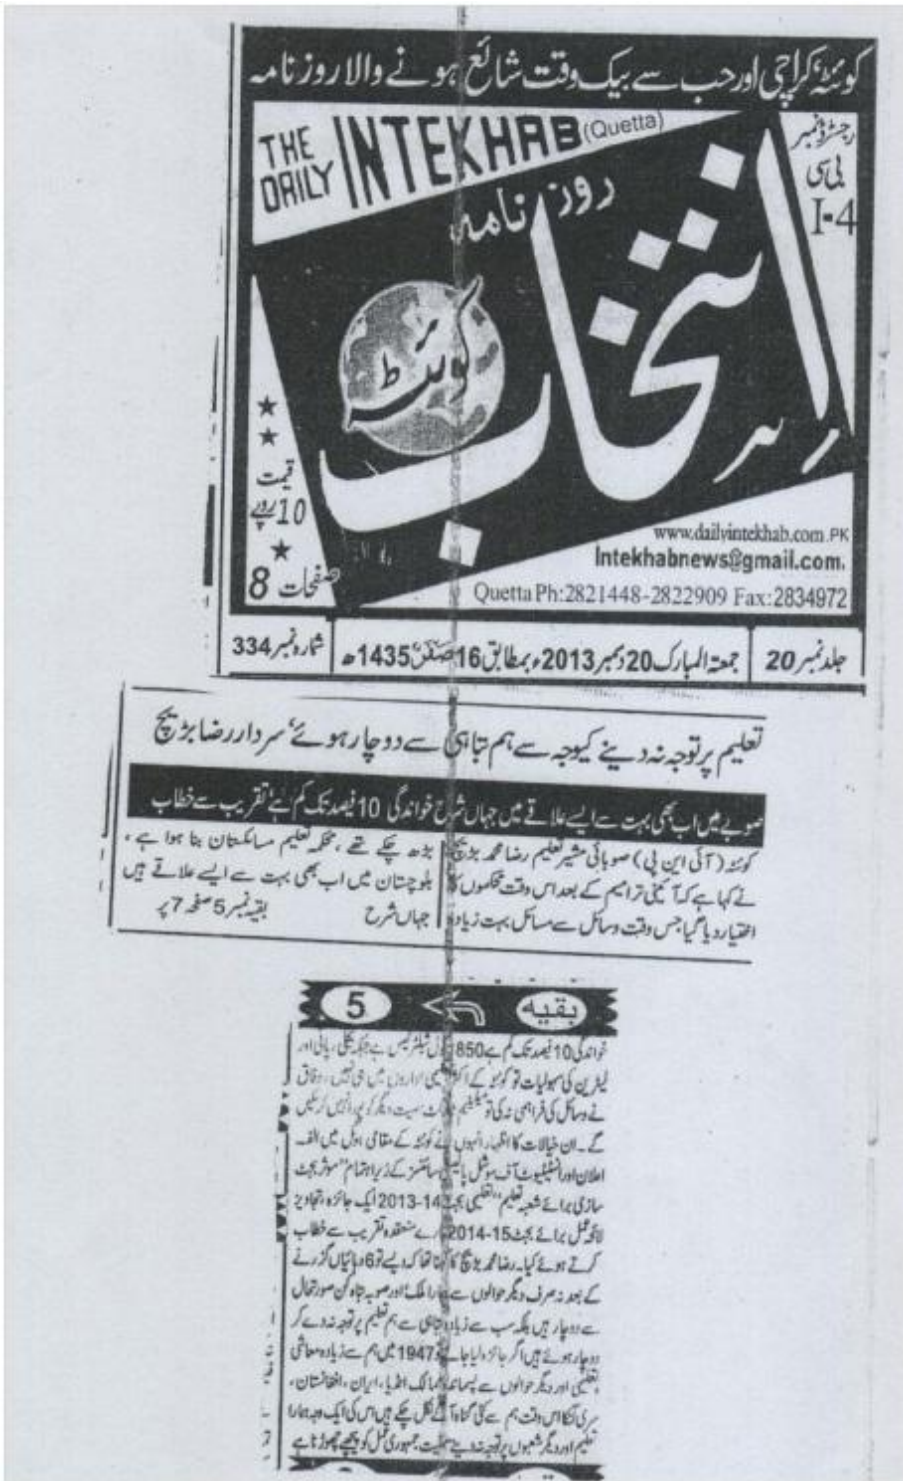 کوئٹہ، کراچی اور حب سے بیک وقت شائع ہونے والا روزنامہ
THE DAILY INTEKHAB (Quetta)
رجسٹرڈ نمبر
بی سی
I-4
روزنامہ
انتخاب
کوئٹہ
قیمت
10 روپے
صفحات 8
www.dailyintekhab.com.PK
Intekhabnews@gmail.com.
Quetta Ph:2821448-2822909 Fax:2834972
جلد نمبر 20 جمعۃ المبارک 20 دسمبر 2013ء بمطابق 16 صفر 1435ھ شمارہ نمبر 334
تعلیم پر توجہ نہ دینے کیوجہ سے ہم تباہی سے دوچار ہوئے، سردار رضا بڑیچ
صوبے میں اب بھی بہت سے ایسے علاقے ہیں جہاں شرح خواندگی 10 فیصد تک کم ہے، تقریب سے خطاب
کوئٹہ (آئی این پی) صوبائی مشیر تعلیم رضا محمد بڑیچ
نے کہا ہے کہ آئینی ترامیم کے بعد اس وقت محکموں کا
اختیار دیا گیا جس وقت وسائل سے مسائل بہت زیادہ
بڑھ چکے تھے، محکمہ تعلیم مسائلستان بنا ہوا ہے،
بلوچستان میں اب بھی بہت سے ایسے علاقے ہیں
جہاں شرح بقیہ نمبر 5 صفحہ 7 پر
بقیہ 5
خواندگی 10 فیصد تک کم ہے 850 شیلٹر لیس ہے جبکہ بجلی، پانی اور
لیٹرین کی سہولیات تو کوئٹہ کے اکثر اداروں میں بھی نہیں، وفاق
نے وسائل کی فراہمی نہ کی تو سمیت دیگر کو پورا نہیں کر سکیں
گے۔ ان خیالات کا اظہار انہوں نے کوئٹہ کے مقامی ہوٹل میں الف
اعلان اور انسٹیٹیوٹ آف سوشل پالیسی سائنسز کے زیر اہتمام "موثر بجٹ
سازی برائے شعبہ تعلیم" "تعلیمی بجٹ 14-2013 ایک جائزہ، تجاویز
لائحہ عمل برائے بجٹ 15-2014" بارے منعقدہ تقریب سے خطاب
کرتے ہوئے کیا۔ رضا محمد بڑیچ کا کہنا تھا کہ ویسے تو 6 دہائیاں گزرنے
کے بعد نہ صرف دیگر حوالوں سے ہمارا ملک اور صوبہ تباہ کن صورتحال
سے دوچار ہیں بلکہ سب سے زیادہ تباہی سے ہم تعلیم پر توجہ نہ دے کر
دوچار ہوئے ہیں اگر جائزہ لیا جائے تو 1947 میں ہم سے زیادہ معاشی
تعلیمی اور دیگر حوالوں سے پسماندہ ممالک انڈیا، ایران، افغانستان،
سری لنکا اس وقت ہم سے کئی گناہ آگے نکل چکے ہیں اس کی ایک وجہ ہمارا
تعلیم اور دیگر شعبوں پر توجہ نہ دینے سمیت جمہوری عمل کو پیچھے چھوڑنا ہے